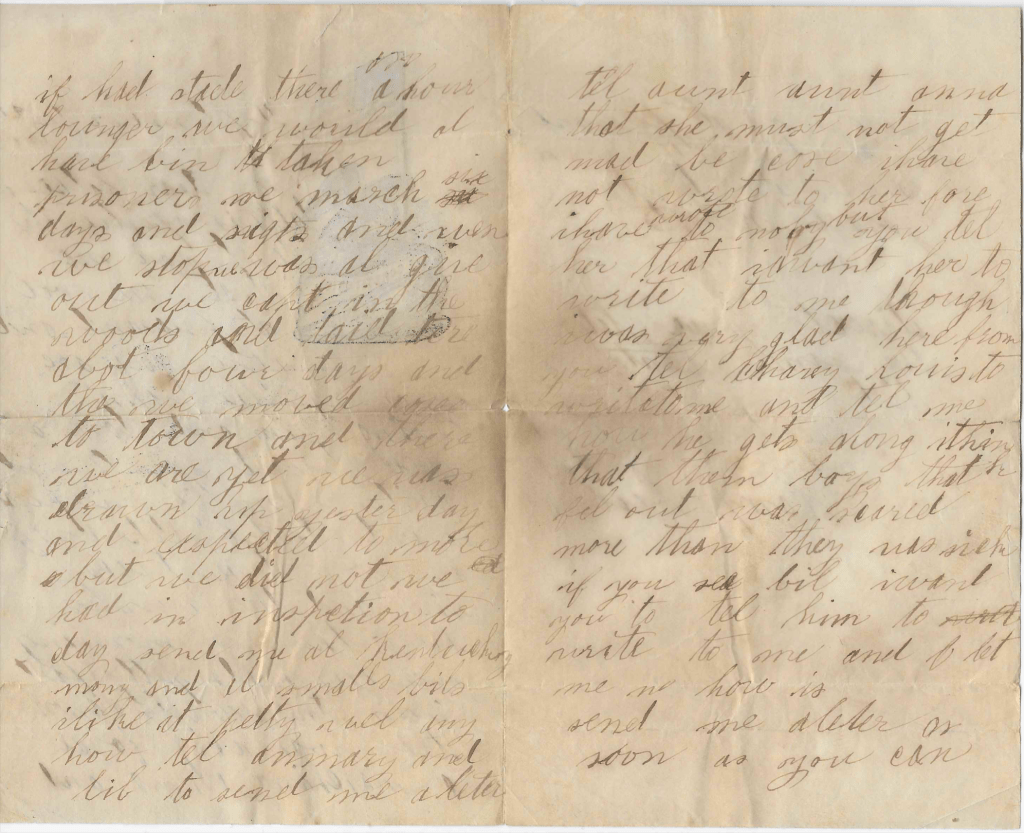 if had stade there a hour
lounger we would al
have bin taken
prisoners we march six
days and nigts and wen
we stop we was al give
out we capt in the
woods and laid there
abot four days and
than we moved
to town and there
we are yet we was
drawn up yester day
and expected to move
but we did not we
had in inspetion to
day send me al Kentucky
mony and al smalls bils
i like it petty wel any
how tel an mary and
lib to send me a leter
tel aunt aunt anna
that she must not get
mad be cose ihave
not wrote to her fore
ihave wrote to nowy but you tel
her that iwant her to
write to me though
iwas very glad here from
you tel Charry Louis to
writetome and tel me
how he gets along ithink
that them boys that
fel out was scared
more than they was sick
if you see bil iwant
you to tel him to
write to me and let
me no how is
send me aleter as
soon as you can